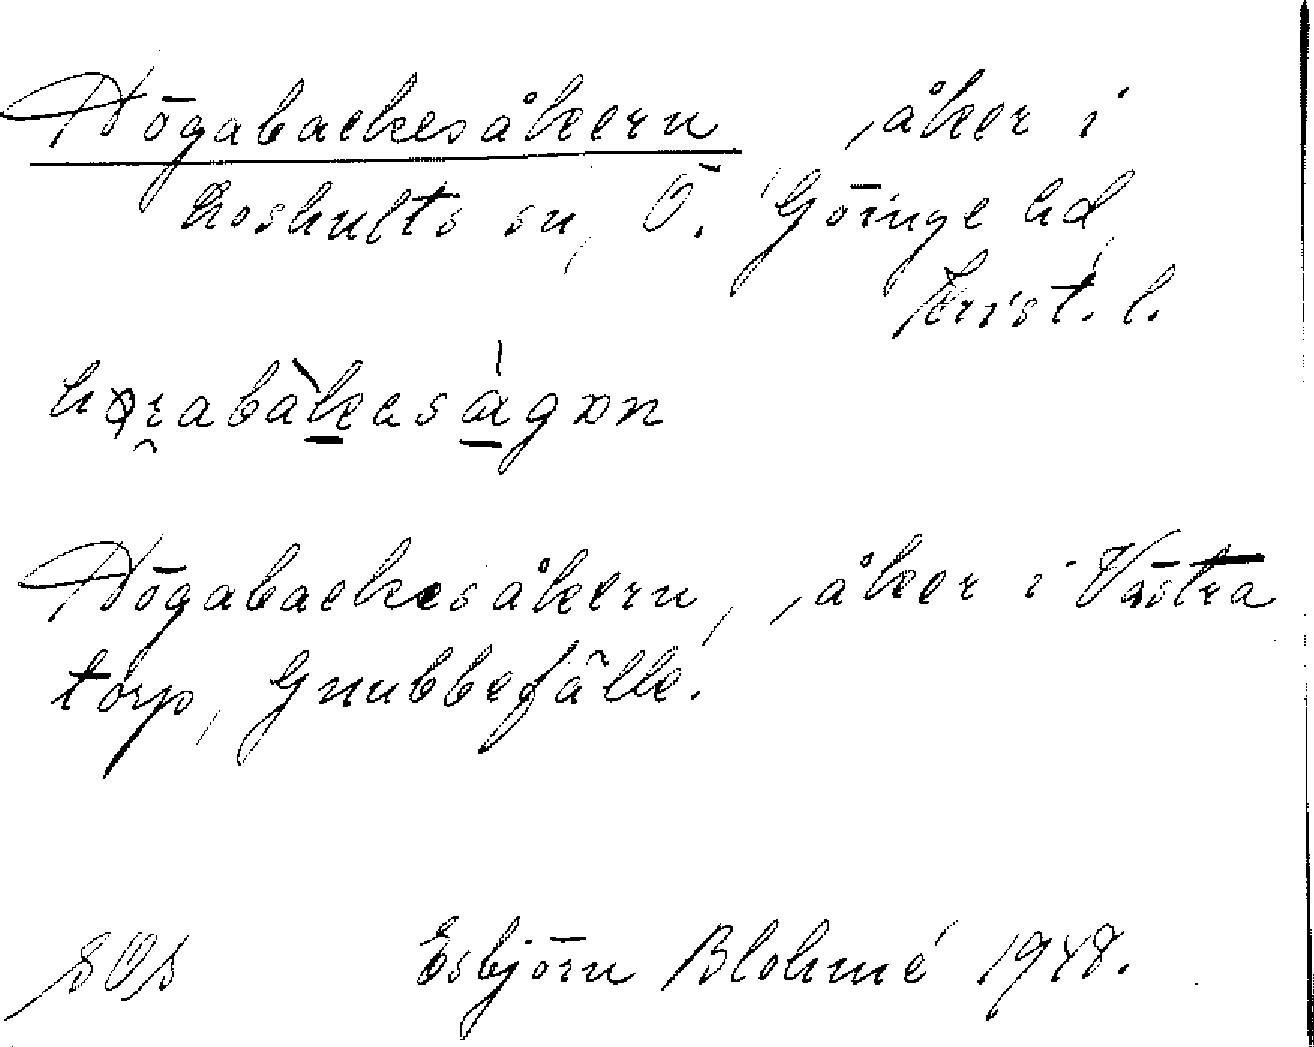 Högabackesåkern, åker i
Loshults sn, Ö. Göinge hd,
Krist. l.
Högabackesåkern, åker i Västra
torp, Gnubbefälle.
Esbjörn Blohmé 1948.